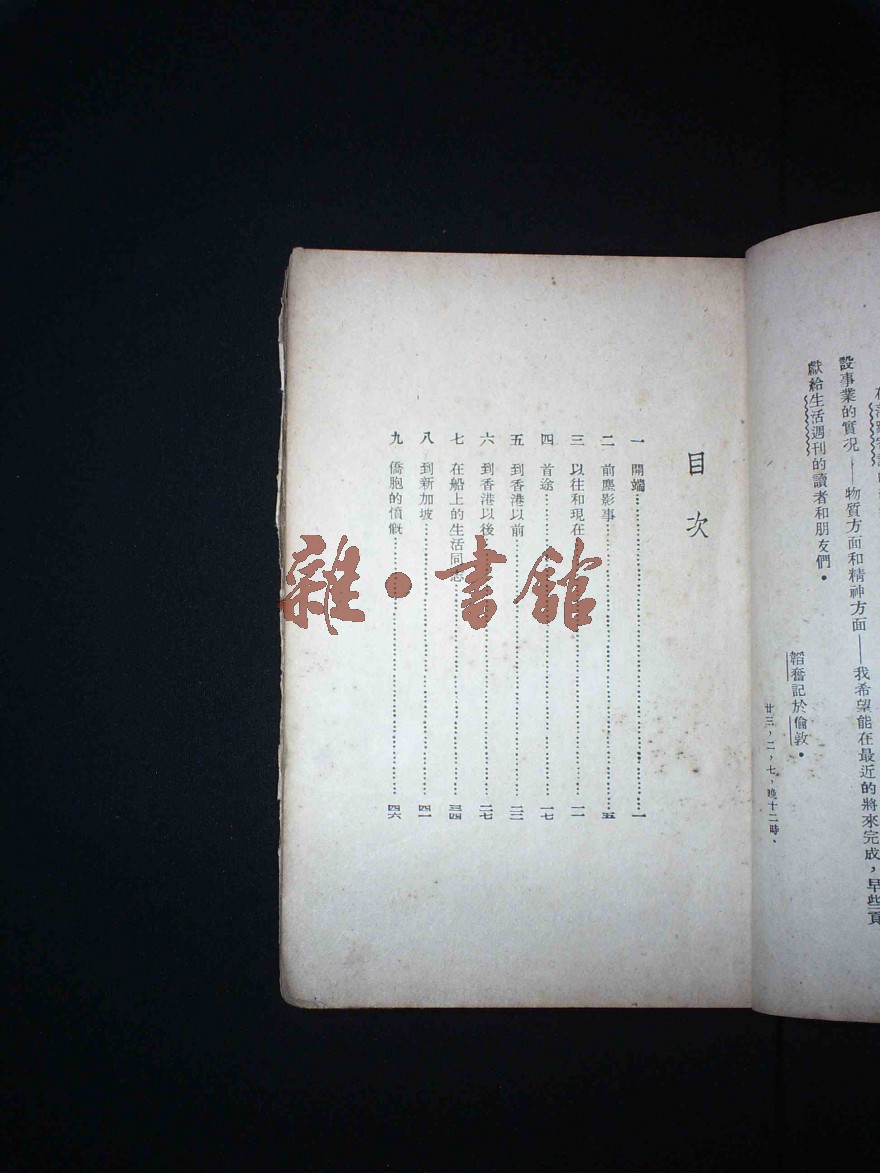 設事業的實況——物質方面和精神方面——我希望能在最近的將來完成，早些貢
獻給生活週刊的讀者和朋友們。
韜奮記於倫敦。
廿三，二，七，晚十二時。
目次
一 開端……一
二 前塵影事……五
三 以往和現在……一一
四 首途……一七
五 到香港以前……二三
六 到香港以後……二七
七 在船上的生活同志……三四
八 到新加坡……四一
九 僑胞的憤慨……四六
雜·書館